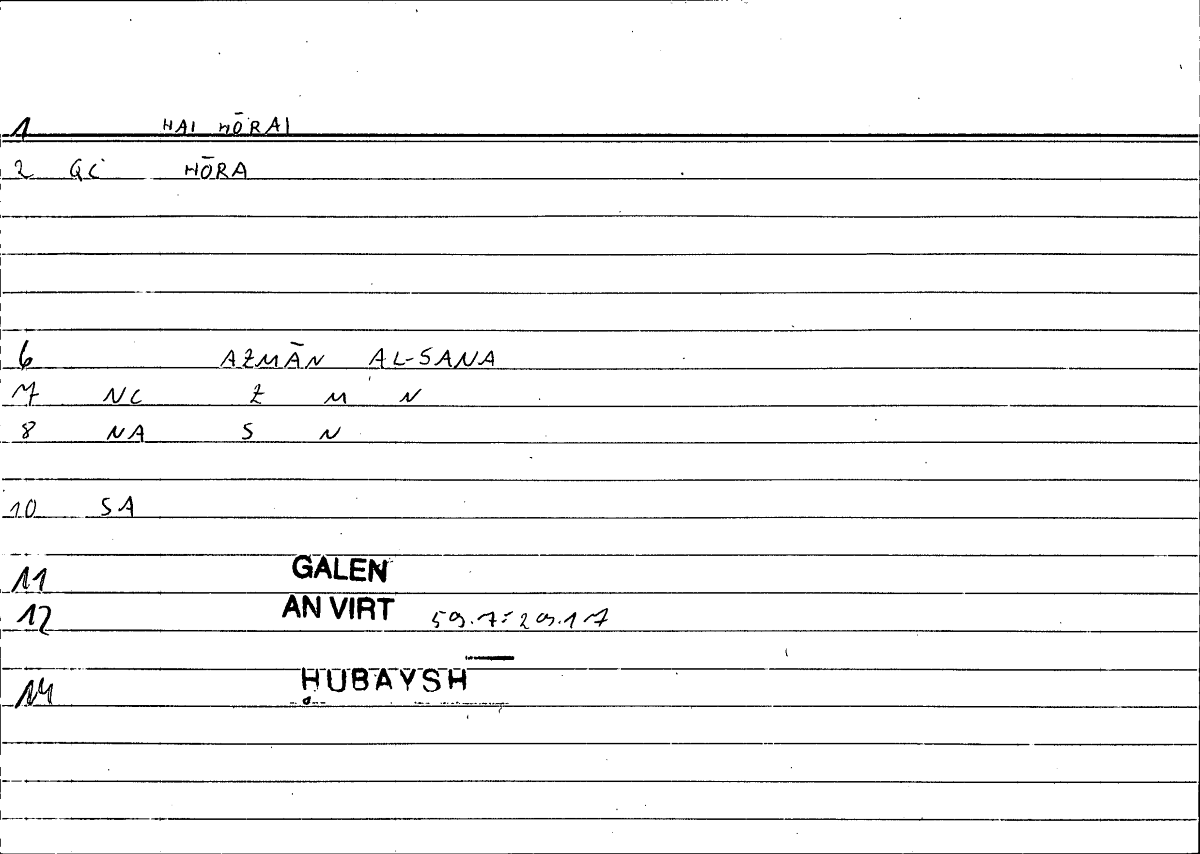 1 HAI HŌRAI
2 QC HŌRA
6 AZMĀN AL-SANA
7 NC Z M N
8 NA S N
10 SA
11 GALEN
12 AN VIRT 59.7=29.17
14 HUBAYSH